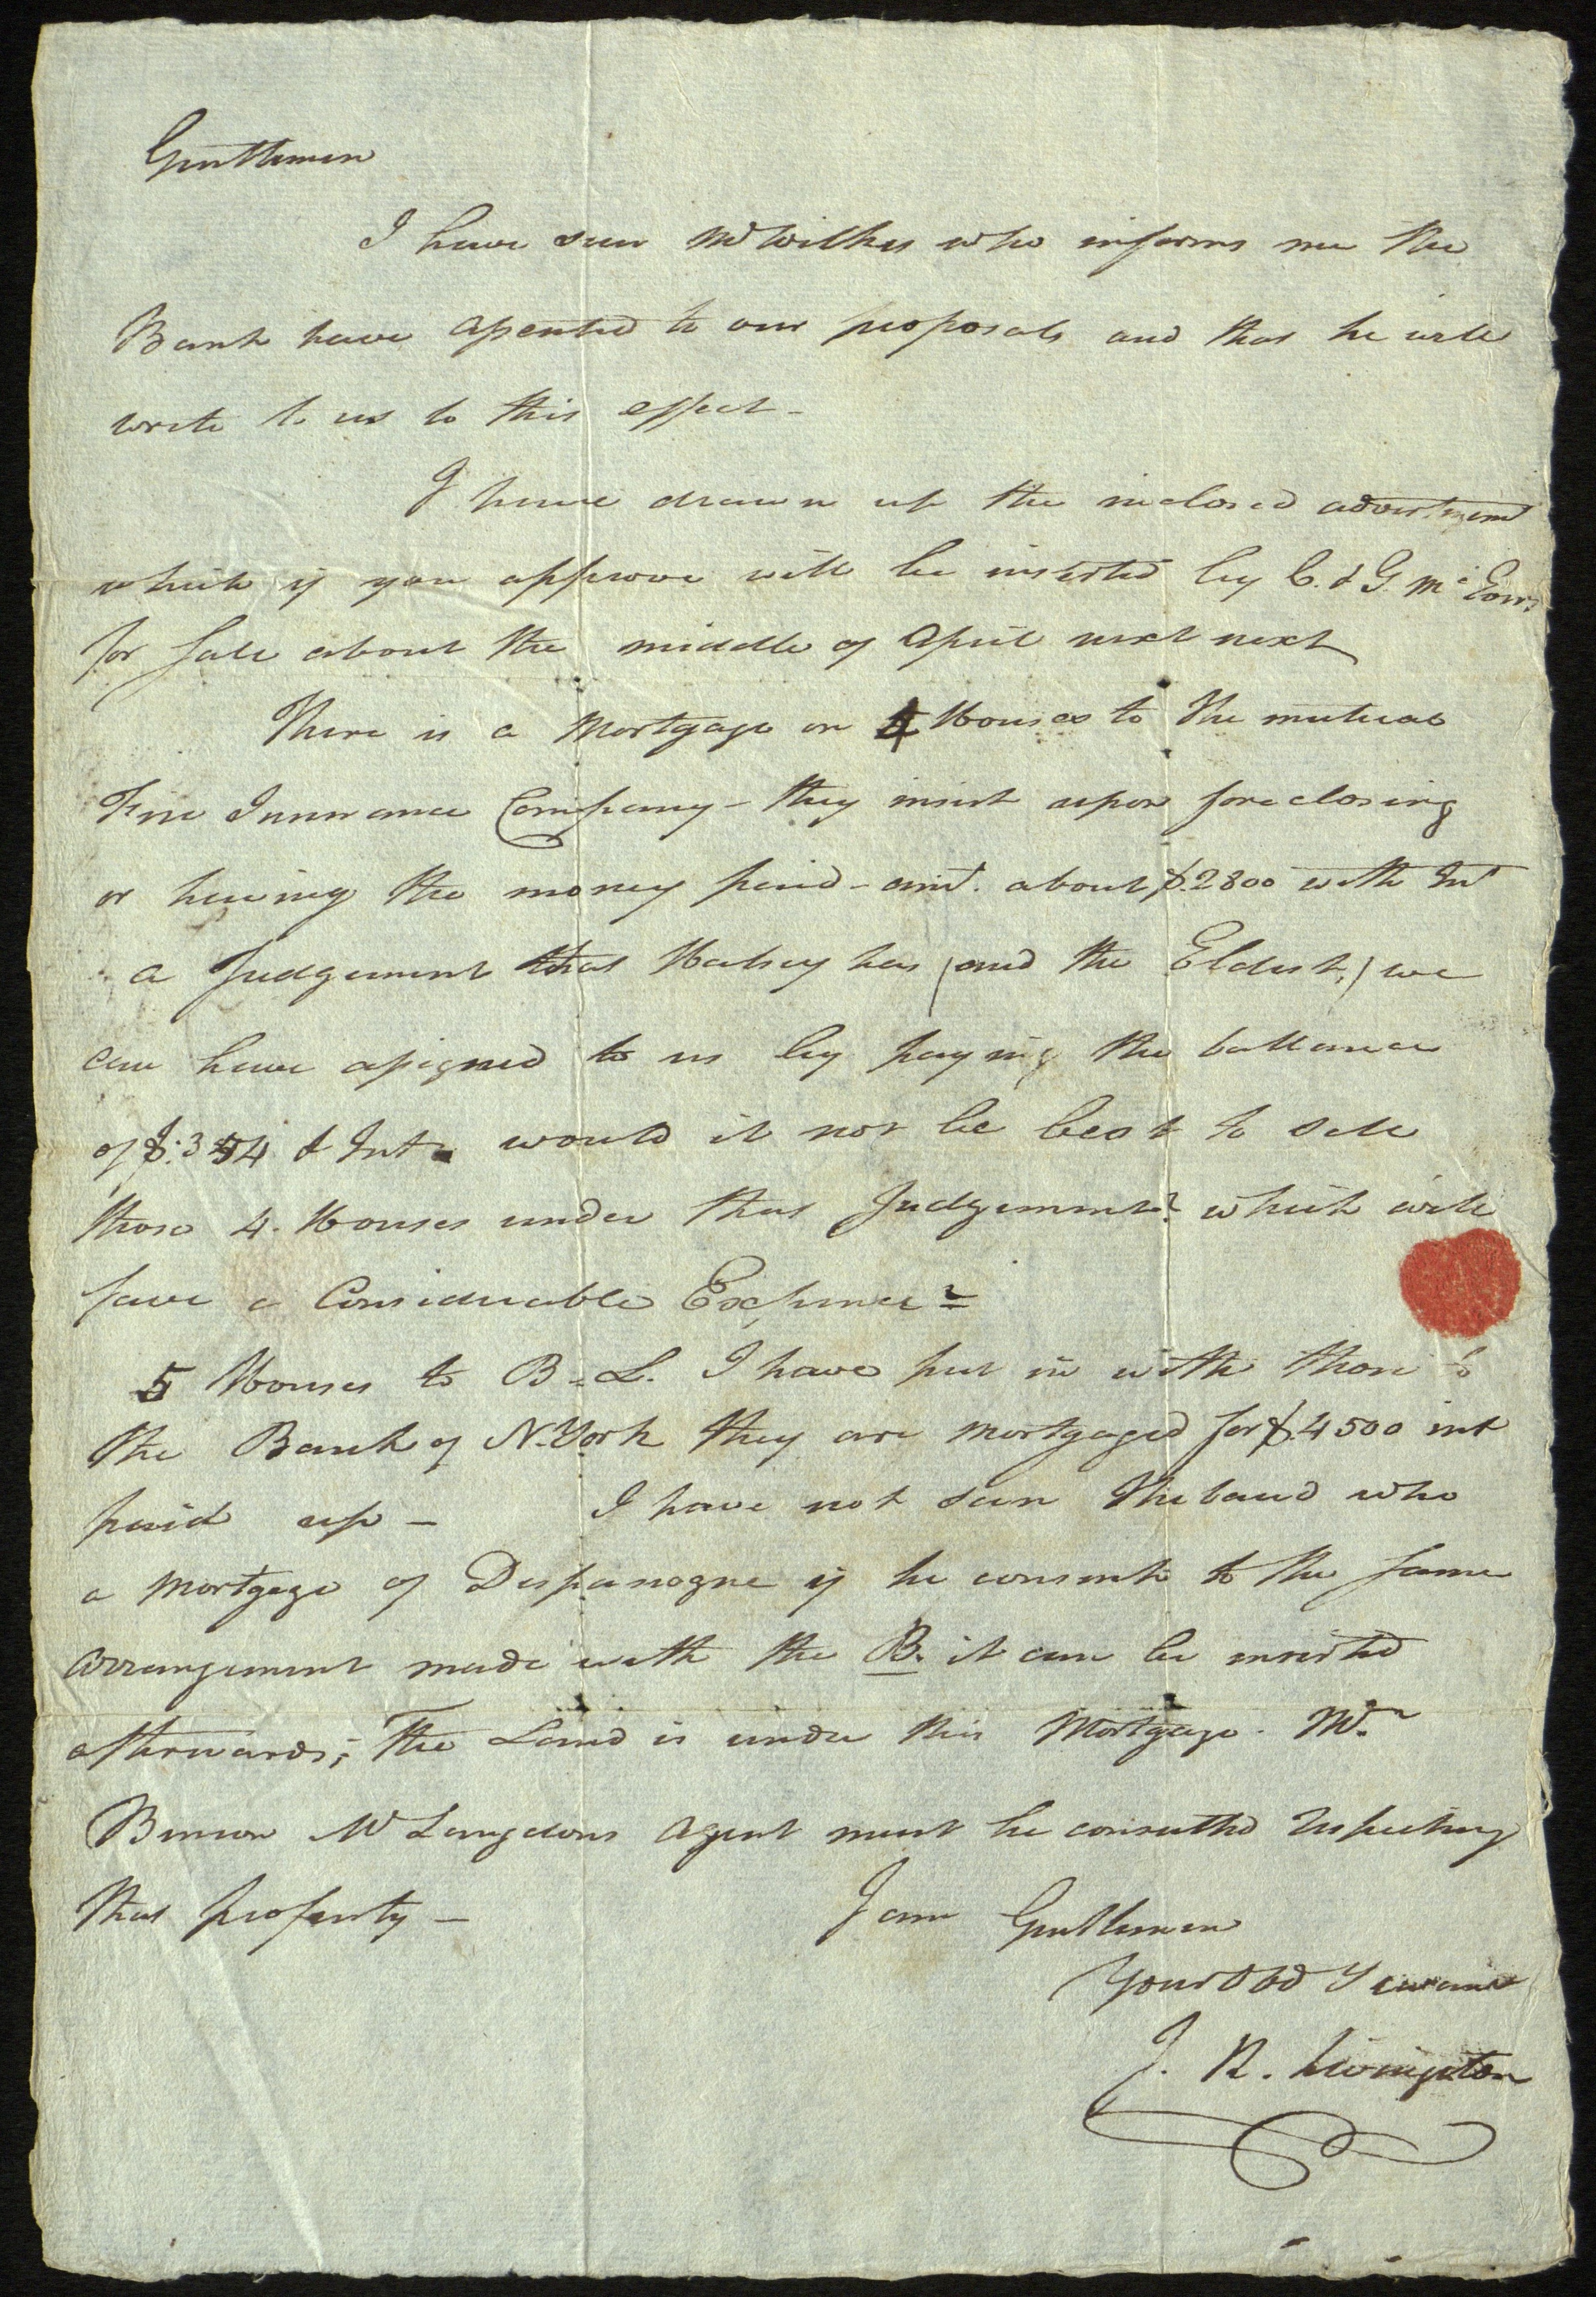 Gentlemen
I have seen Mr Wilkes who informs me the
Bank have assented to our proposals and that he will
write to us to this effect -
I have drawn up the inclosed advertisement
which if you approve will be inserted by C. & G. McEvers
for sale about the middle of April next next
There is a Mortgage on 4 Houses to the mutual
Fire Insurance Company - they insist upon foreclosing
or having the money paid - amt. about $.2800 with Int
a Judgement that Halsey has (and the Eldest,) we
can have assigned to us by paying the ballance
of $.354 & Int would it not be best to sell
those 4. Houses under that Judgement? which will
save a Considerable Expence? =
5 Houses to B=L. I have put in with those to
the Bank of N.York they are mortgaged for $.4500 int
paid up - I have not seen Thebaud who
a mortgage of Despanogne if he consents to the same
arrangement made with the B. it can be inserted
afterwards; - The Land is under this Mortgage. Mr
Benson Mr Langdons agent must be consulted respecting
that property -
I am Gentlemen
Your Obd Servant
J. R. Livingston